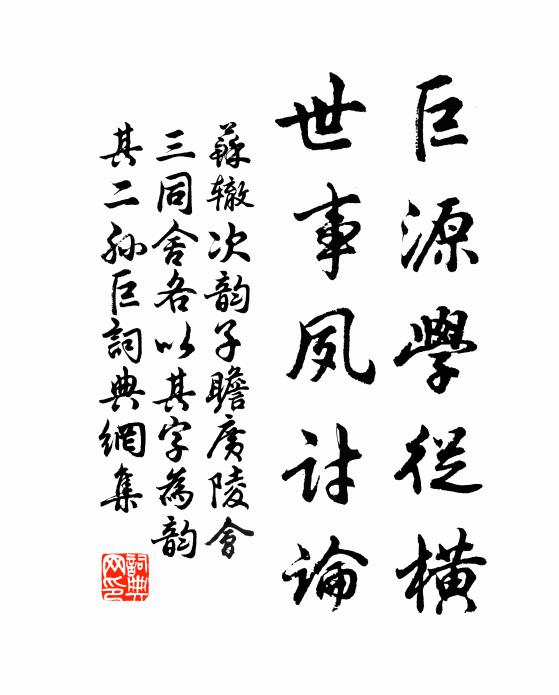 巨源學從橫
世事夙討論
蘇辙次韵子瞻廣陵會
三同舍各以其字為韵
其二孙巨詞典網集
詞典
网印